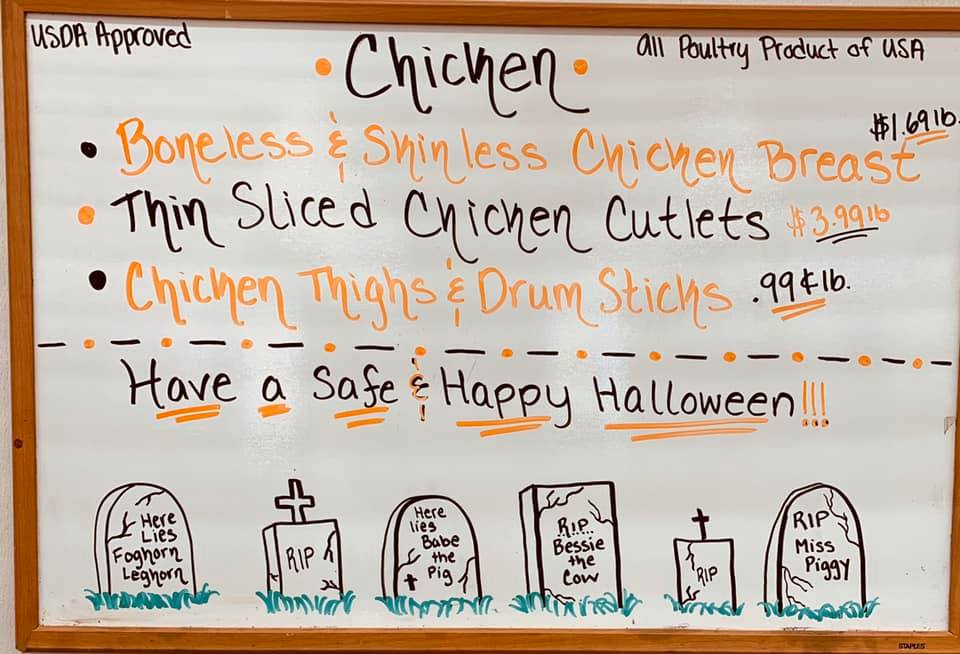 USDA Approved
All Poultry Product of USA
Chicken
Boneless & Skinless Chicken Breast $1.69 lb.
Thin Sliced Chicken Cutlets $3.99 lb
Chicken Thighs & Drum Sticks .99¢ lb.
Have a Safe & Happy Halloween!!!
Here
Lies
Foghorn
Leghorn
RIP
Here
lies
Babe
the
Pig
R.I.P.
Bessie
the
Cow
RIP
RIP
Miss
Piggy
STAPLES